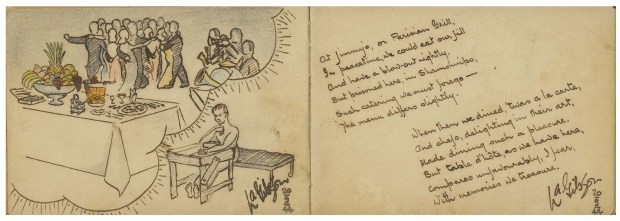 At Jimmys, or Parisien Grill,
In peacetime, we could eat our fill
And have a blow-out nightly.
But prisoned here, in Shamshuipo,
Such catering we must forego —
The menu differs slightly.
When then we dined, 'twas a la carte,
And chefs, delighting in their art,
Made dining such a pleasure.
But table d'hôte, as we have here,
Compares unfavourably, I fear,
With memories we treasure.